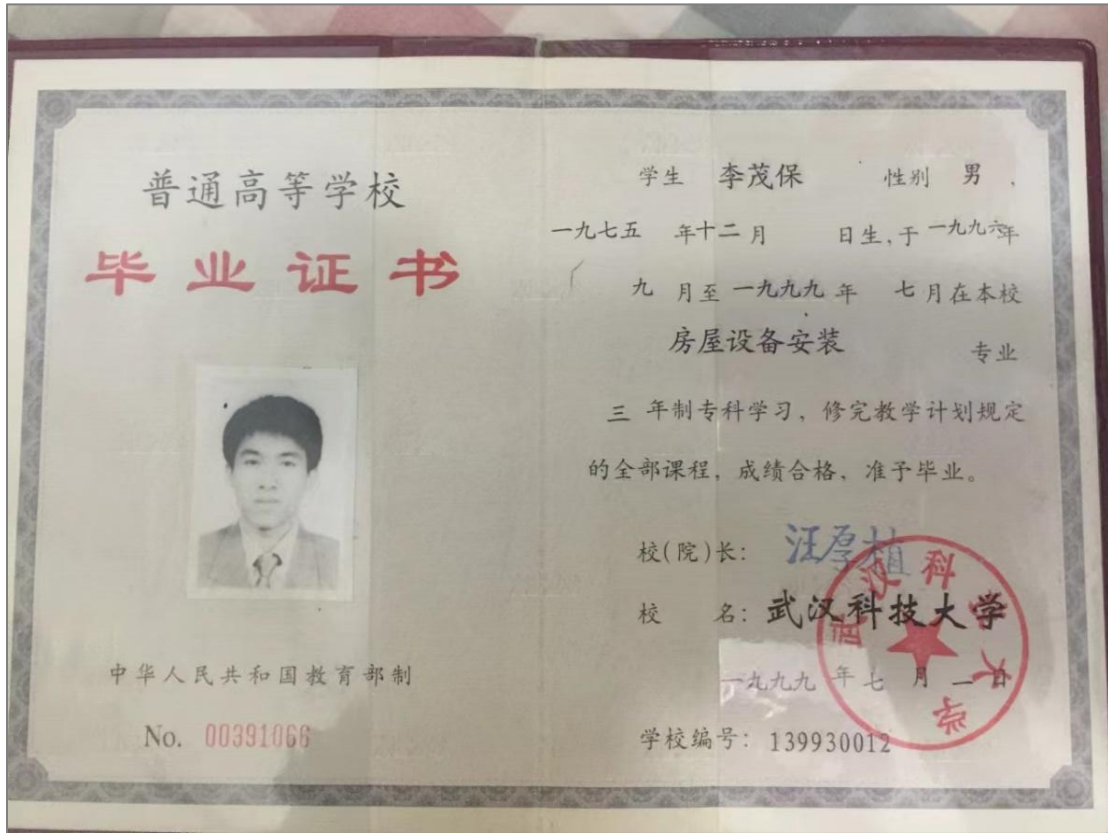 普通高等学校
毕业证书
中华人民共和国教育部制
No. 00391066
学生 李茂保 性别 男 ,
一九七五 年十二月 日生,于一九九六年
九 月至一九九九年 七月在本校
房屋设备安装 专业
三 年制专科学习, 修完教学计划规定
的全部课程, 成绩合格, 准予毕业。
校(院)长: 汪厚植
校 名: 武汉科技大学
一九九九 年 七 月 一 日
学校编号: 139930012
武汉科技大学